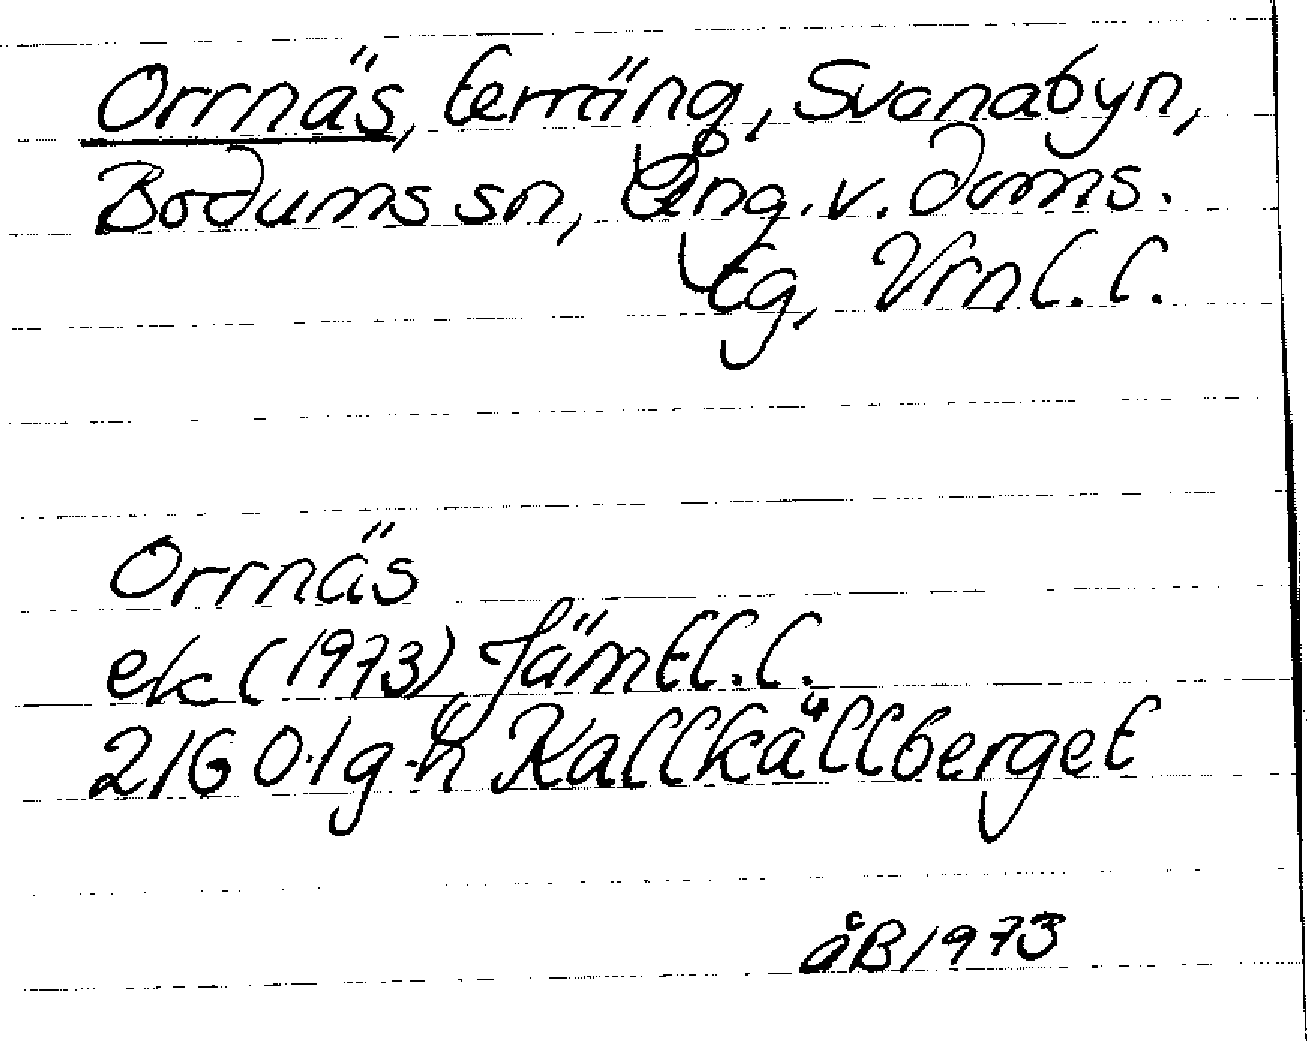 Orrnäs, terräng, Svanabyn,
Bodums sn, Ång. v. doms.
tg, Vrnl. l.
Orrnäs
ek (1973) Jämtl. l.
21G 0·1 g-h Kallkällberget
åB 1973